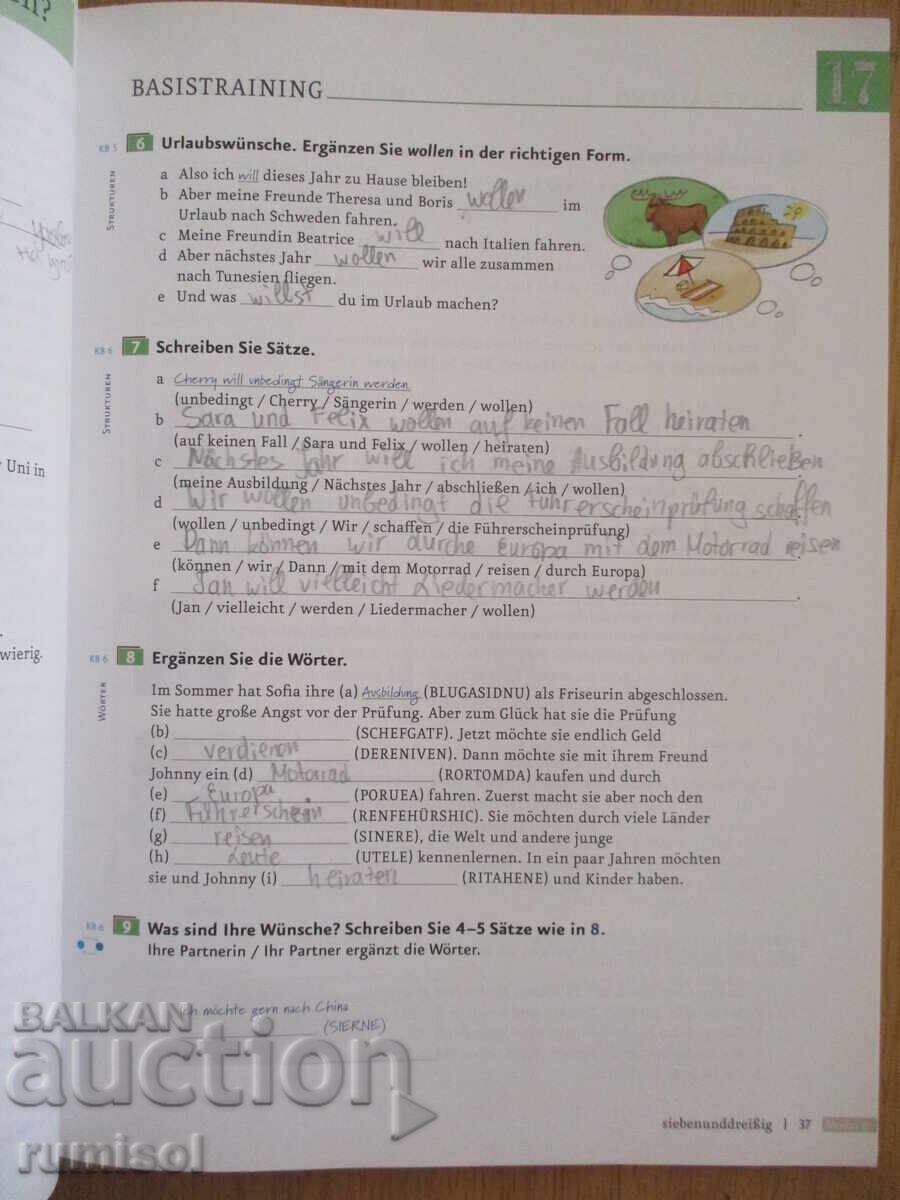 BASISTRAINING
17
KB 5
6 Urlaubswünsche. Ergänzen Sie wollen in der richtigen Form.
STRUKTUREN
a Also ich will dieses Jahr zu Hause bleiben!
b Aber meine Freunde Theresa und Boris wollen im
Urlaub nach Schweden fahren.
c Meine Freundin Beatrice will nach Italien fahren.
d Aber nächstes Jahr wollen wir alle zusammen
nach Tunesien fliegen.
e Und was willst du im Urlaub machen?
KB 6
7 Schreiben Sie Sätze.
STRUKTUREN
a Cherry will unbedingt Sängerin werden
(unbedingt / Cherry / Sängerin / werden / wollen)
b Sara und Felix wollen auf keinen Fall heiraten.
(auf keinen Fall / Sara und Felix / wollen / heiraten)
c Nächstes Jahr will ich meine Ausbildung abschließen
(meine Ausbildung / Nächstes Jahr / abschließen / ich / wollen)
d Wir wollen unbedingt die Führerscheinprüfung schaffen.
(wollen / unbedingt / Wir / schaffen / die Führerscheinprüfung)
e Dann können wir durche Europa mit dem Motorrad reisen
(können / wir / Dann / mit dem Motorrad / reisen / durch Europa)
f Jan will vielleicht Liedermacher werden.
(Jan / vielleicht / werden / Liedermacher / wollen)
Uni in
wierig.
KB 6
8 Ergänzen Sie die Wörter.
WÖRTER
Im Sommer hat Sofia ihre (a) Ausbildung (BLUGASIDNU) als Friseurin abgeschlossen.
Sie hatte große Angst vor der Prüfung. Aber zum Glück hat sie die Prüfung
(b) (SCHEFGATF). Jetzt möchte sie endlich Geld
(c) verdienen (DERENIVEN). Dann möchte sie mit ihrem Freund
Johnny ein (d) Motorrad (RORTOMDA) kaufen und durch
(e) Europa (PORUEA) fahren. Zuerst macht sie aber noch den
(f) Führerschein (RENFEHÜRSHIC). Sie möchten durch viele Länder
(g) reisen (SINERE), die Welt und andere junge
(h) Leute (UTELE) kennenlernen. In ein paar Jahren möchten
sie und Johnny (i) heiraten (RITAHENE) und Kinder haben.
KB 6
9 Was sind Ihre Wünsche? Schreiben Sie 4–5 Sätze wie in 8.
Ihre Partnerin / Ihr Partner ergänzt die Wörter.
Ich möchte gern nach China
(SIERNE)
siebenunddreißig | 37
BALKAN
auction
rumisol